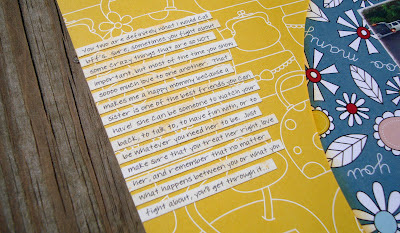 You two are definitely what I would call
bff's. sure, sometimes you fight about
some crazy things that are so not
important, but most of the time you show
soooo much love to one another. That
makes me a happy mommy because a
sister is one of the best friends you can
have! she can be someone to watch your
back, to talk to, to have fun with, or to
be whatever you need her to be. Just
make sure that you treat her right love
her, and remember that no matter
what happens between you or what you
fight about, you'll get through it.
so many
you